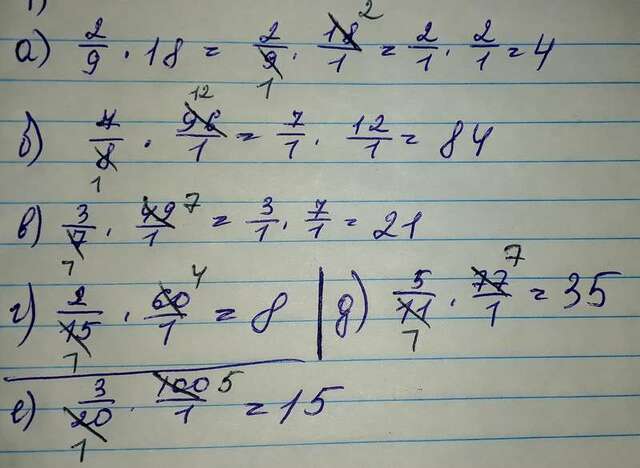 1)
а) 2/9 · 18 = 2/9 · 18/1 = 2/1 · 2/1 = 4
б) 7/8 · 96/1 = 7/1 · 12/1 = 84
в) 3/7 · 49/1 = 3/1 · 7/1 = 21
г) 2/15 · 60/1 = 8 | д) 5/11 · 77/1 = 35
е) 3/20 · 100/1 = 15